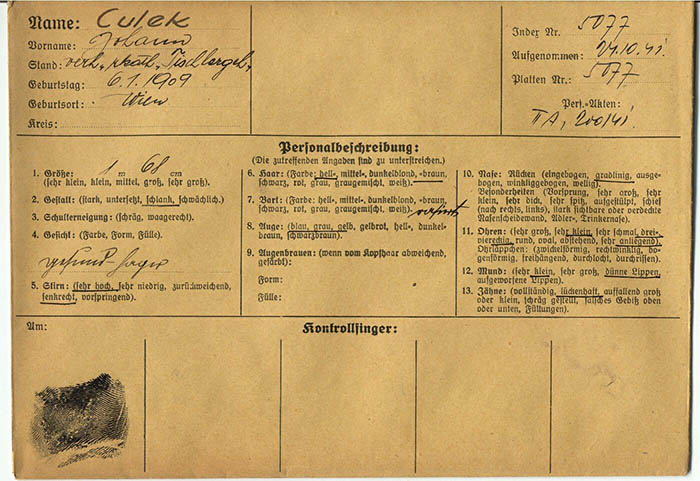 Name: Culek
Vorname: Johann
Stand: verh., kath., Tischlergeh.
Geburtstag: 6.1.1909
Geburtsort: Wien
Kreis:
Index Nr. 5077
Aufgenommen: 14.10.41.
Platten Nr.: 5077
Pers.-Akten:
II A, 200/41
Personalbeschreibung:
(Die zutreffenden Angaben sind zu unterstreichen.)
1. Größe:
1 m 68 cm
(sehr klein, klein, mittel, groß, sehr groß).
2. Gestalt: (stark, untersetzt, schlank, schwächlich).
3. Schulterneigung: (schräg, waagerecht).
4. Gesicht: (Farbe, Form, Fülle).
gesund hager
5. Stirn: (sehr hoch, sehr niedrig, zurückweichend,
senkrecht, vorspringend).
6. Haar: (Farbe: hell-, mittel-, dunkelblond, -braun,
schwarz, rot, grau, graugemischt, weiß).
7. Bart: (Farbe: hell-, mittel-, dunkelblond, -braun,
schwarz, rot, grau, graugemischt, weiß).
8. Auge: (blau, grau, gelb, gelbrot, hell-, dunkel-
braun, schwarzbraun).
9. Augenbrauen: (wenn vom Kopfhaar abweichend,
gefärbt):
Form:
Fülle:
10. Nase: Rücken (eingebogen, gradlinig, ausge-
bogen, winkliggebogen, wellig).
Besonderheiten (Vorsprung, sehr groß, sehr
klein, sehr dick, sehr spitz, aufgestülpt, schief
(nach rechts, links), stark sichtbare oder verdeckte
Nasenscheidewand, Adler-, Trinkernase).
11. Ohren: (sehr groß, sehr klein, sehr schmal, drei-,
viereckig, rund, oval, abstehend, sehr anliegend).
Ohrläppchen: (zwickelförmig, rechtwinklig, bo-
genförmig, freihängend, durchlocht, durchrissen).
12. Mund: (sehr klein, sehr groß, dünne Lippen,
aufgeworfene Lippen).
13. Zähne: (vollständig, lückenhaft, auffallend groß
oder klein, schräg gestellt, falsches Gebiß oben
oder unten, Füllungen).
Am:
Kontrollfinger: